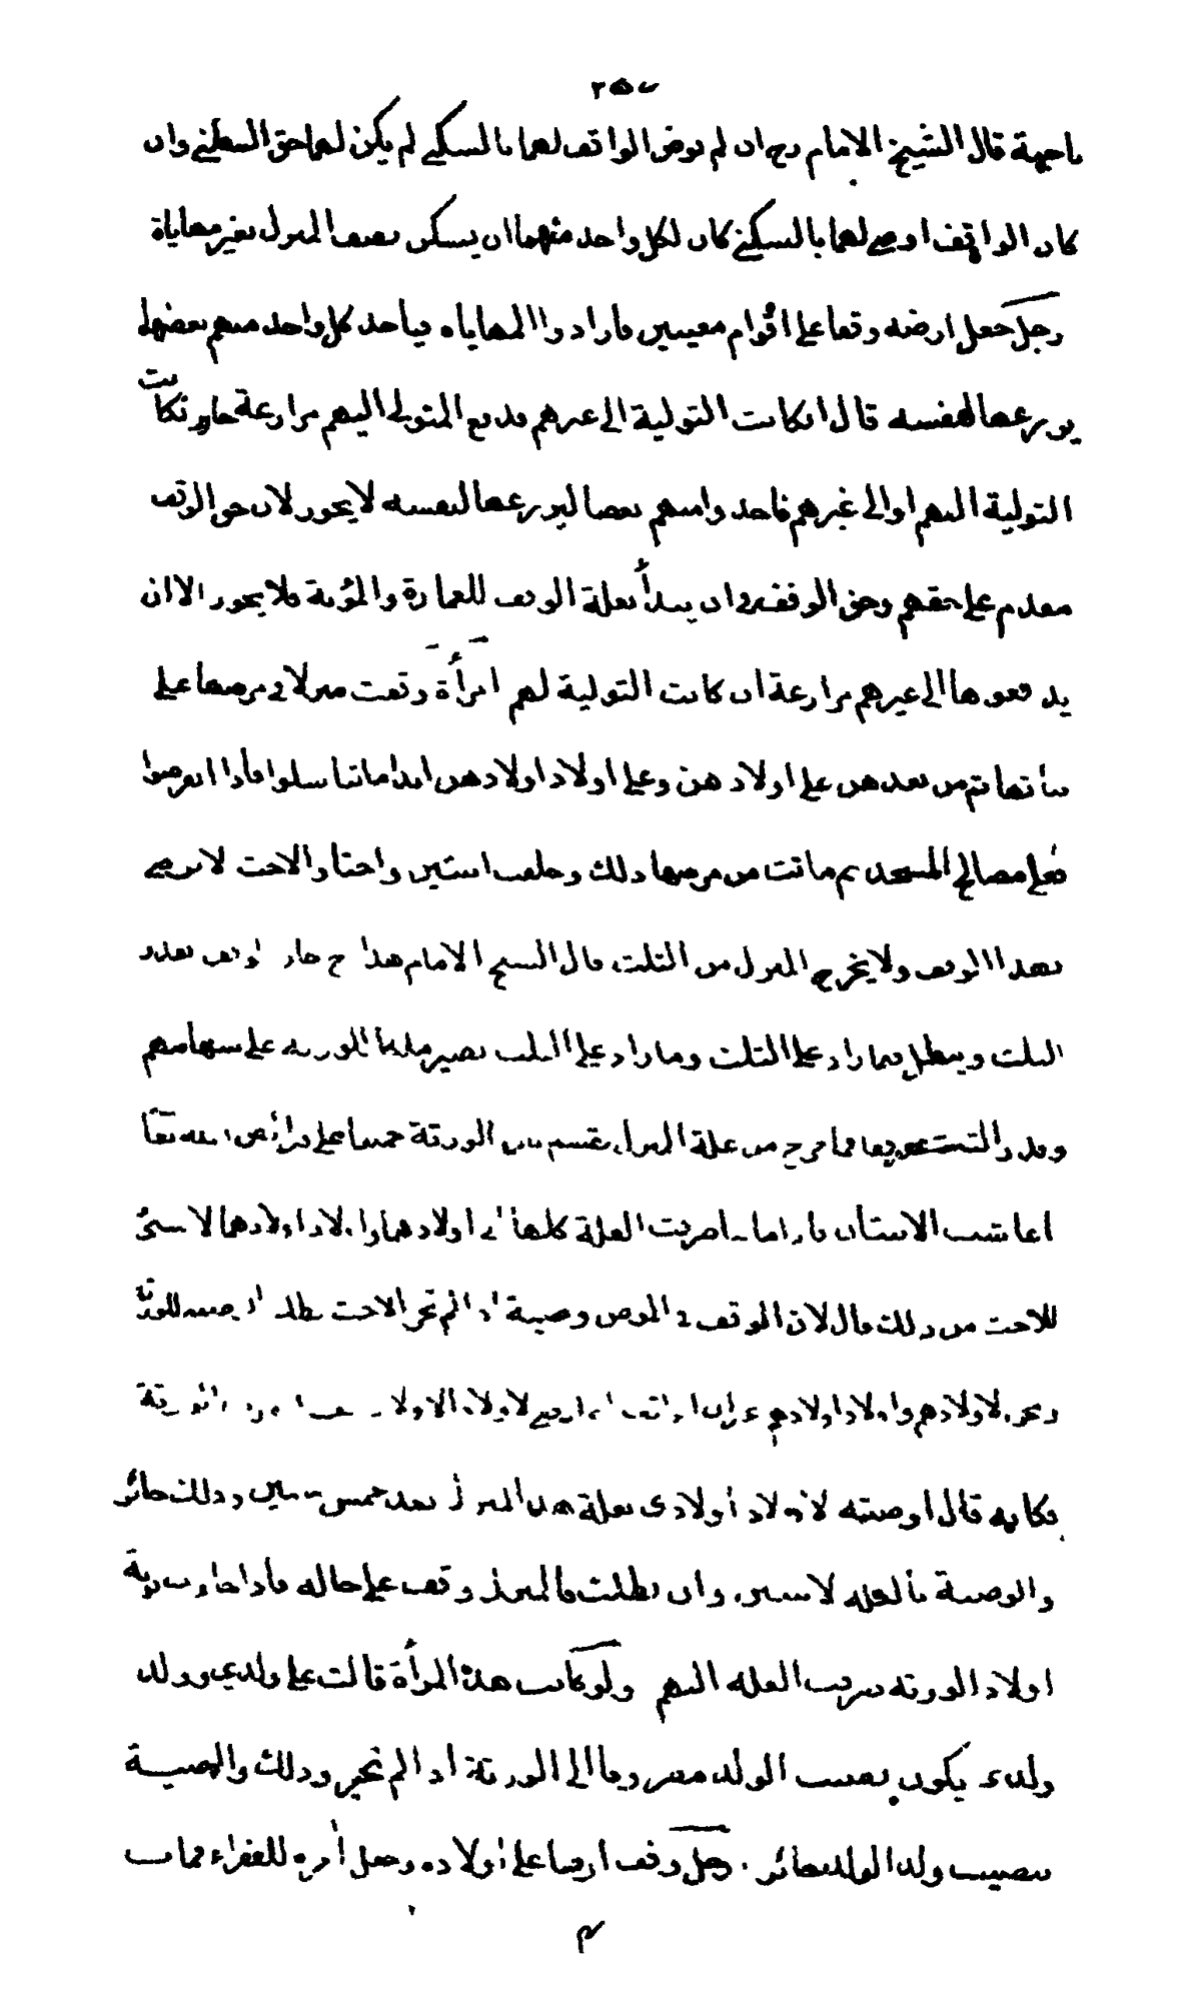 ناحية قال الشيخ الامام رح ان لم يوص الواقف لهما بالسكنى لم يكن لهما حق السكنى وان
كان الواقف اوصى لهما بالسكنى كان لكل واحد منهما ان يسكن نصف المنزل بغير مهاياة
رجل جعل ارضه وقفا على اقوام معينين فارادوا المهاياه فياخذ كل واحد منهم بعضها
يزرعها لنفسه قال ان كانت التولية الى غيرهم فدفع المتولى اليهم مزارعة جاز وان كانت
التولية اليهم او الى غيرهم فاخذ واحد منهم بعضا ليزرعها لنفسه لا يجوز لان حق الوقف
مقدم على حقهم وحق الوقف في ان يبدأ بغلة الوقف للعمارة والمؤنة فلا يجوز الا ان
يدفعوها الى غيرهم مزارعة ان كانت التولية لهم امرأة وقفت منزلا في مرضها على
بناتها ثم من بعدهن على اولادهن وعلى اولاد اولادهن ابدا ما تناسلوا فاذا انقرضوا
فعلى مصالح المسجد ثم ماتت من مرضها ذلك وخلفت ابنتين واختا والاخت لا ترضى
بهذا الوقف ولا يخرج المنزل من الثلث قال الشيخ الامام هذا ح جاز الوقف بقدر
الثلث ويبطل فيما زاد على الثلث وما زاد على الثلث يصير ملكا للورثه على سهامهم
وقدر الثلث فما خرج من غلة المنزل يقسم بين الورثة جميعا على فرائض الله تعا
ما عاشت الابنتان فاذا ماتتا صرفت الغلة كلها الى اولادهما واولاد اولادهما لا شئ
للاخت من ذلك قال لان الوقف في المرض وصية اذا لم تجز الاخت بطلت الوصية للورثة
لاولادهم واولاد اولادهم لاولاد الاولاد الورثة
فكانه قال اوصيته لاولاد أولادى بغلة هذا المنزل بعد خمسين وذلك جائز
والوصية بالغله وان بطلت فالمنزل وقف على حاله فاذا جاءت نوبة
اولاد الورثه صرفت الغله اليهم ولو كانت هذه المرأة قالت على ولدي وولد
ولدى يكون نصيب الولد مصروفا الى الورثة اذا لم تجز وذلك والوصية
بنصيب ولد الولد جائز رجل وقف ارضا على أولاده وجعل أخره للفقراء فمات